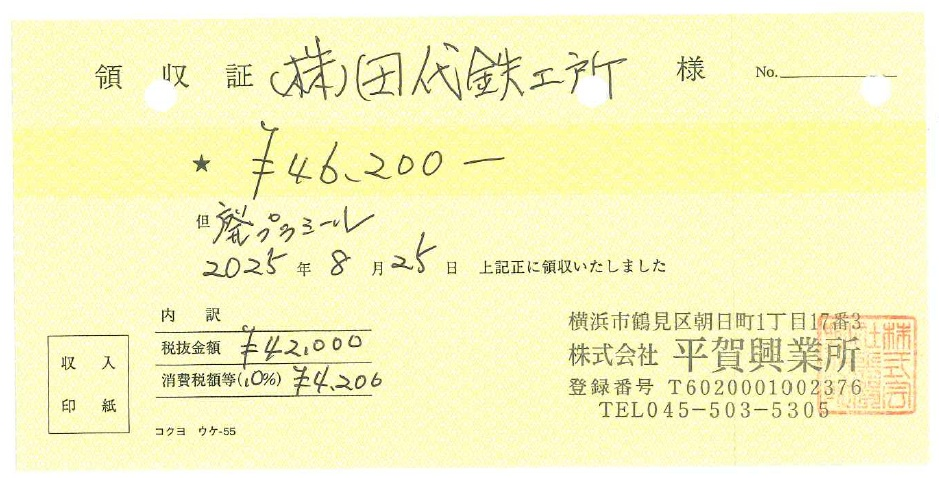 領収証 (株)田代鉄工所 様 No.
★ ¥46,200-
但 廃プラミール
2025年8月25日 上記正に領収いたしました
内訳
税抜金額 ¥42,000
消費税額等(10%) ¥4,200
収入
印紙
コクヨ ウケ-55
横浜市鶴見区朝日町1丁目17番3
株式会社 平賀興業所
登録番号 T6020001002376
TEL045-503-5305